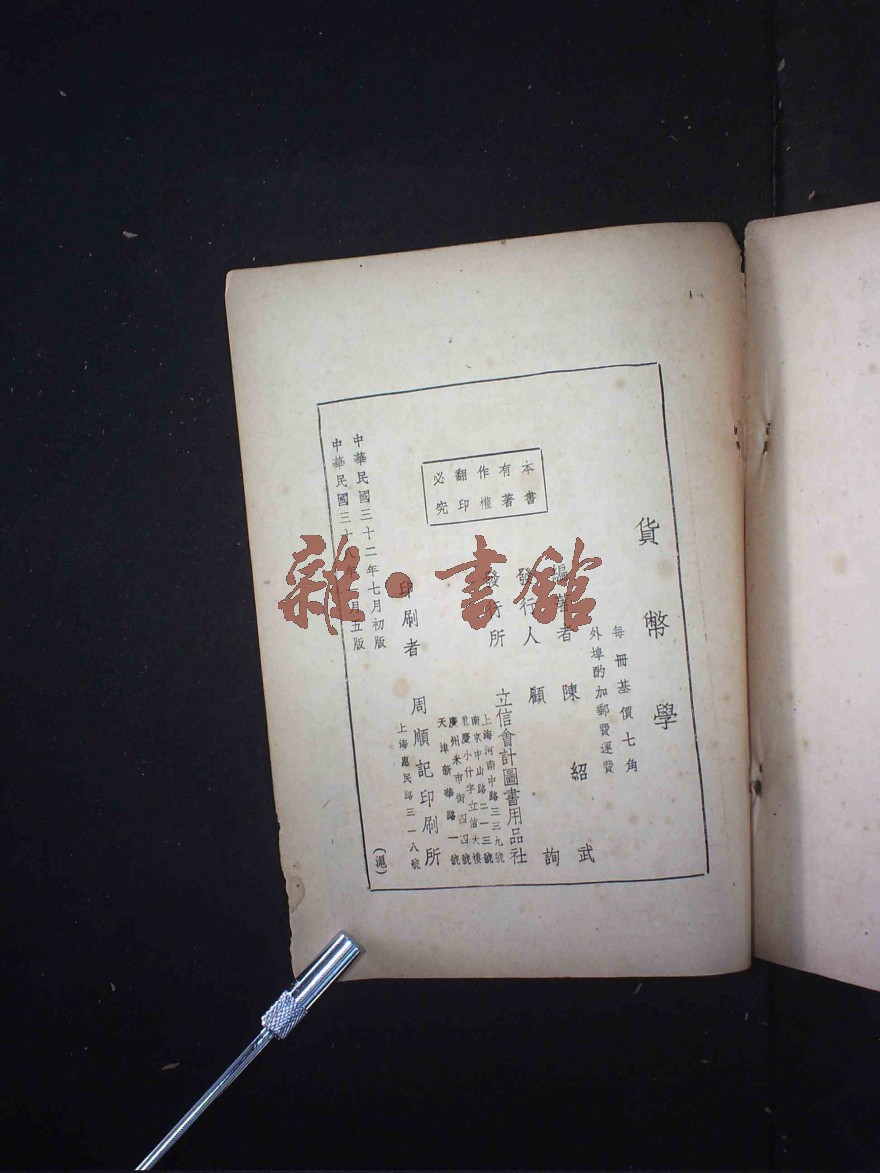 貨幣學
每冊基價七角
外埠酌加郵費運費
編著者 陳紹武
發行人 顧詢
發行所 立信會計圖書用品社
上海河南中路三三九號
南京中山路二一三號
重慶小什字立信大樓
廣州米市街四四號
天津新華路一號
印刷者 周順記印刷所
上海惠民路三一八號
本書有著作權翻印必究
中華民國三十二年七月初版
中華民國三十八年 月五版
(滬)
雜·書館